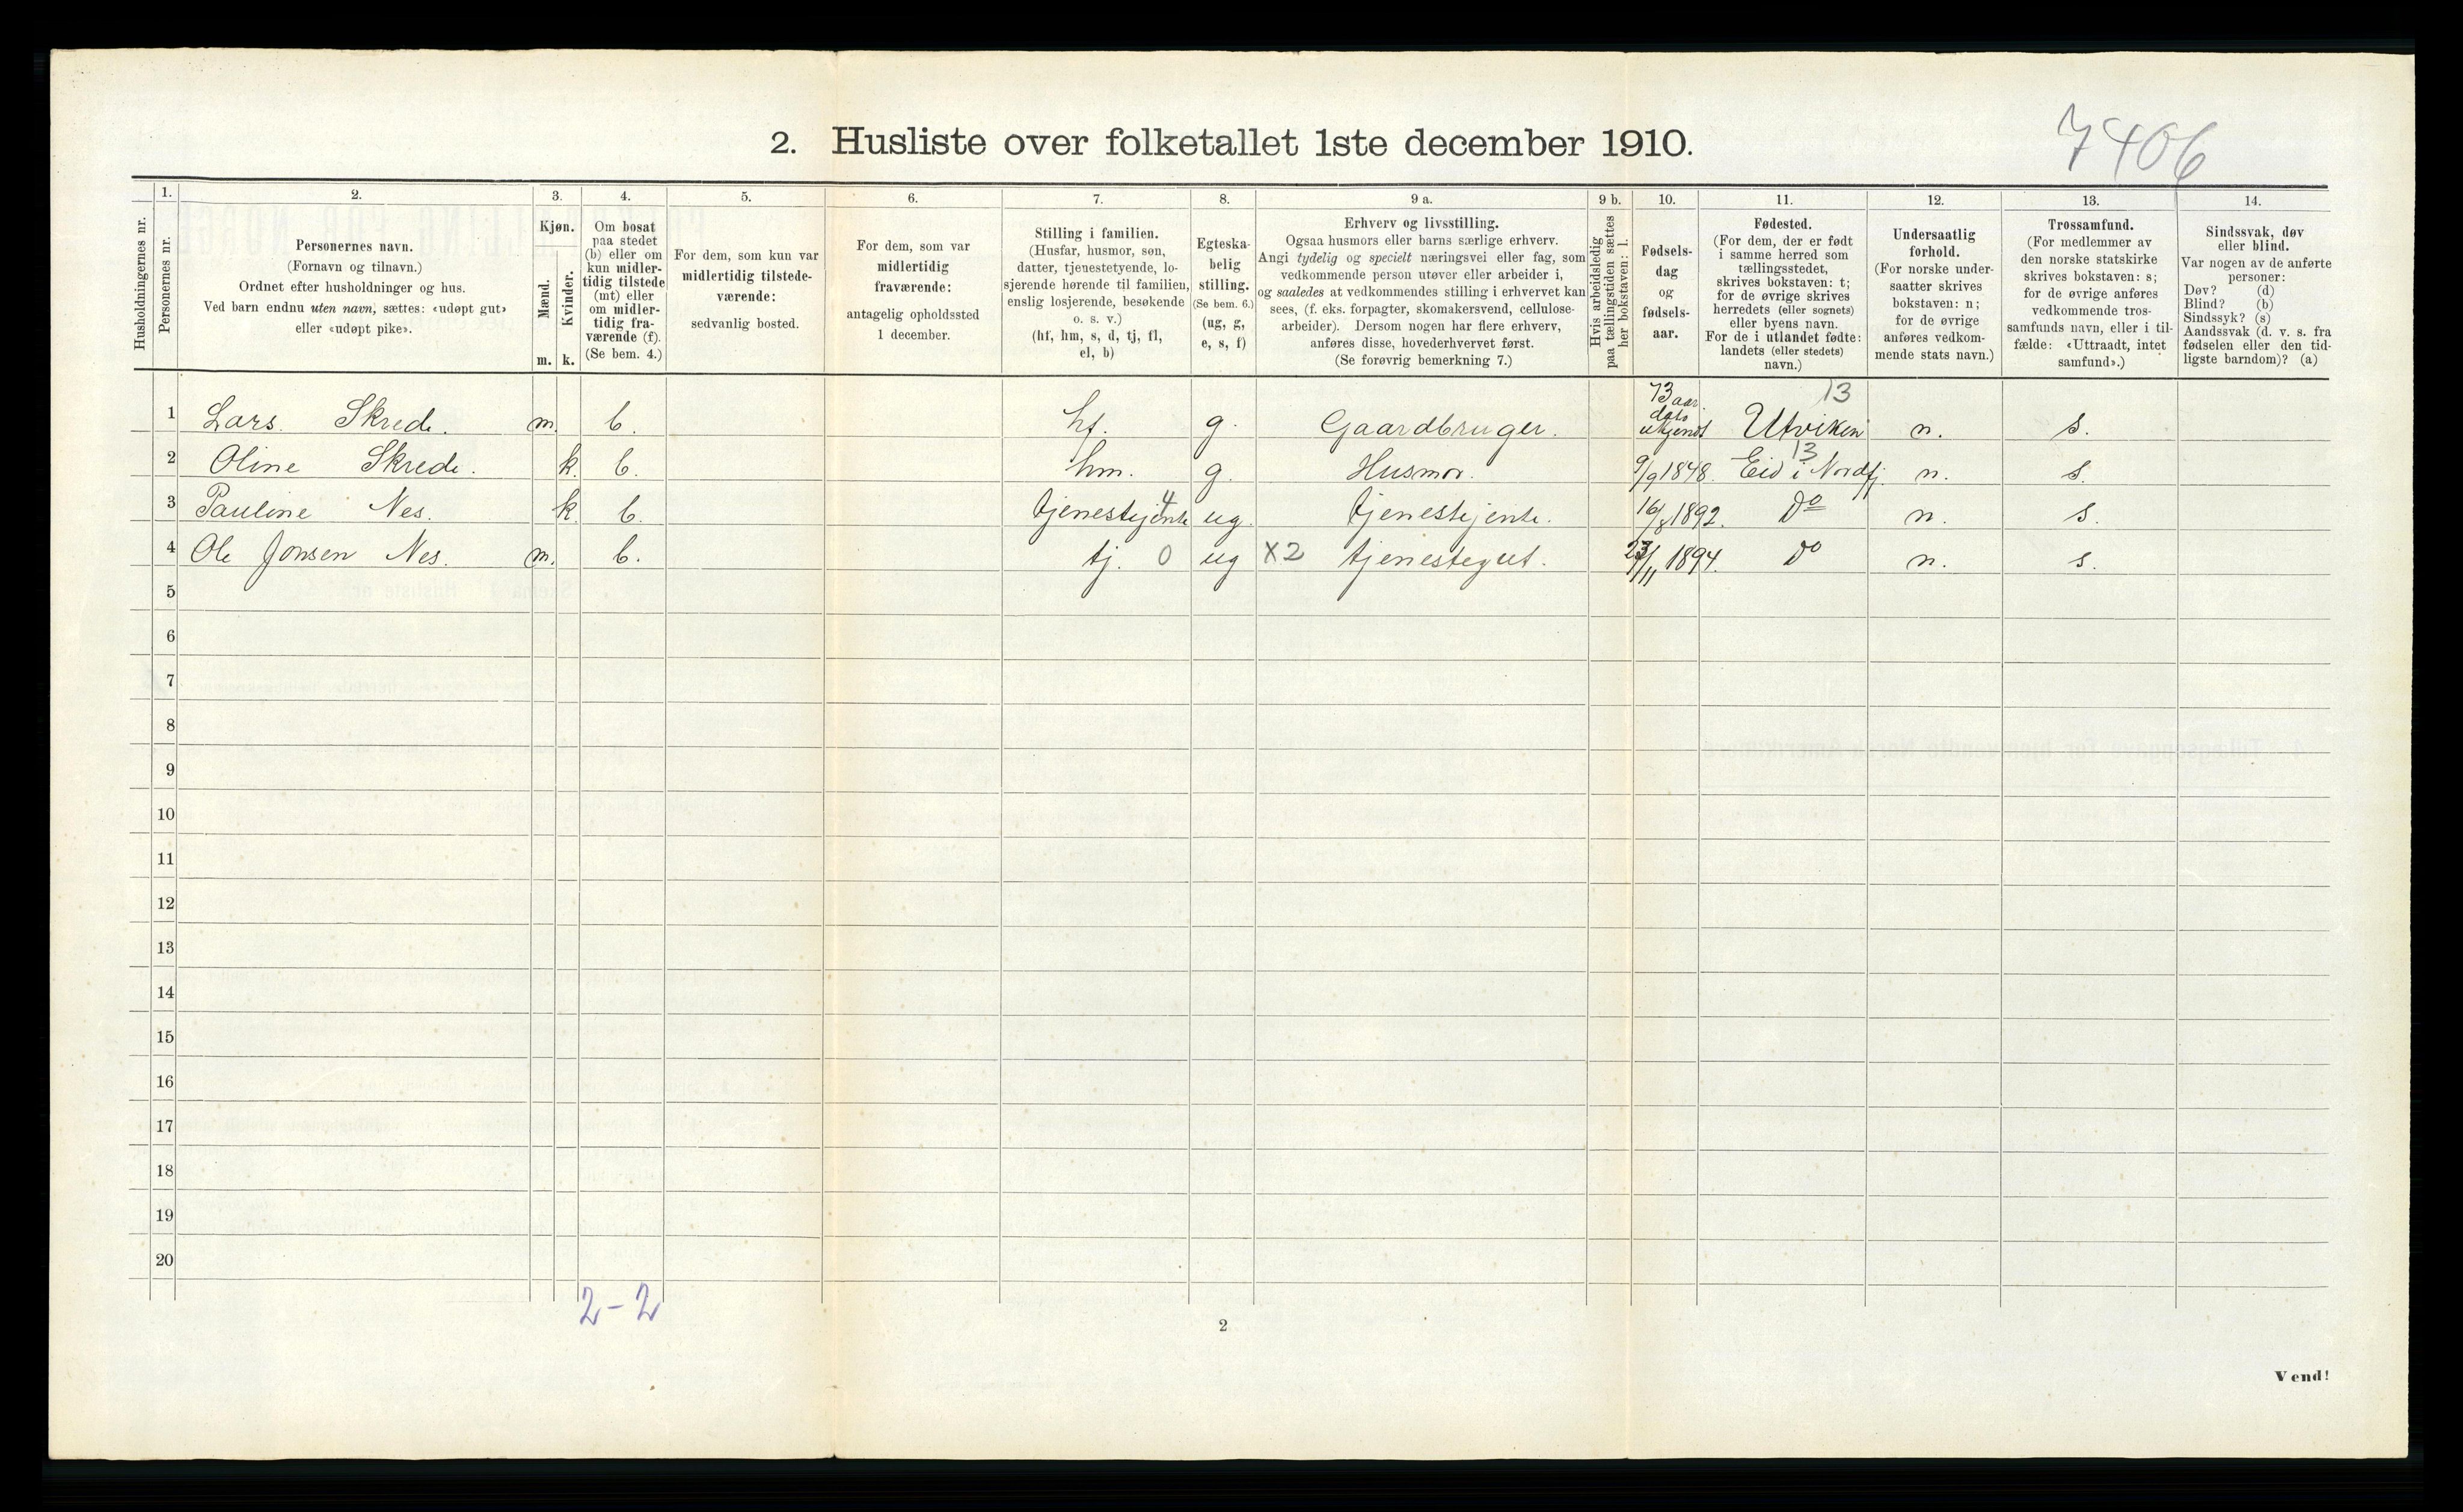 7406
2. Husliste over folketallet 1ste december 1910.
Husholdningernes nr.
1.
Personernes nr.
2.
Personernes navn.
(Fornavn og tilnavn.)
Ordnet efter husholdninger og hus.
Ved barn endnu uten navn, sættes: «udøpt gut»
eller «udøpt pike».
3.
Kjøn.
Mænd.
Kvinder.
m. k.
4.
Om bosat
paa stedet
(b) eller om
kun midler-
tidig tilstede
(mt) eller
om midler-
tidig fra-
værende (f).
(Se bem. 4.)
5.
For dem, som kun var
midlertidig tilstede-
værende:
sedvanlig bosted.
6.
For dem, som var
midlertidig
fraværende:
antagelig opholdssted
1 december.
7.
Stilling i familien.
(Husfar, husmor, søn,
datter, tjenestetyende, lo-
sjerende hørende til familien,
enslig losjerende, besøkende
o. s. v.)
(hf, hm, s, d, tj, fl,
el, b)
8.
Egteska-
belig
stilling.
(Se bem. 6.)
(ug, g,
e, s, f)
9 a.
Erhverv og livsstilling.
Ogsaa husmors eller barns særlige erhverv.
Angi tydelig og specielt næringsvei eller fag, som
vedkommende person utøver eller arbeider i,
og saaledes at vedkommendes stilling i erhvervet kan
sees, (f. eks. forpagter, skomakersvend, cellulose-
arbeider). Dersom nogen har flere erhverv,
anføres disse, hovederhvervet først.
(Se forøvrig bemerkning 7.)
9 b.
Hvis arbeidsledig
paa tællingstiden sættes
her bokstaven: l.
10.
Fødsels-
dag
og
fødsels-
aar.
11.
Fødested.
(For dem, der er født
i samme herred som
tællingsstedet,
skrives bokstaven: t;
for de øvrige skrives
herredets (eller sognets)
eller byens navn.
For de i utlandet fødte:
landets (eller stedets)
navn.)
12.
Undersaatlig
forhold.
(For norske under-
saatter skrives
bokstaven: n;
for de øvrige
anføres vedkom-
mende stats navn.)
13.
Trossamfund.
(For medlemmer av
den norske statskirke
skrives bokstaven: s;
for de øvrige anføres
vedkommende tros-
samfunds navn, eller i til-
fælde: «Uttraadt, intet
samfund».)
14.
Sindssvak, døv
eller blind.
Var nogen av de anførte
personer:
Døv? (d)
Blind? (b)
Sindssyk? (s)
Aandssvak (d. v. s. fra
fødselen eller den tid-
ligste barndom)? (a)
1 Lars Skrede. m. b. hf. g. Gaardbruger. 73 aar. dato ukjendt 13 Utviken n. s.
2 Oline Skrede. k. b. hm. g. Husmor. 9/9 1848. 13 Eid i Nordfj. n. s.
3 Pauline Nes. k. b. tjenestejente 4 ug. tjenestejente. 16/8 1892. Do n. s.
4 Ole Jonsen Nes. m. b. tj. 0 ug X2 tjenestegut. 23/11 1894. Do n. s.
5
6
7
8
9
10
11
12
13
14
15
16
17
18
19
20
2-2
2
Vend!